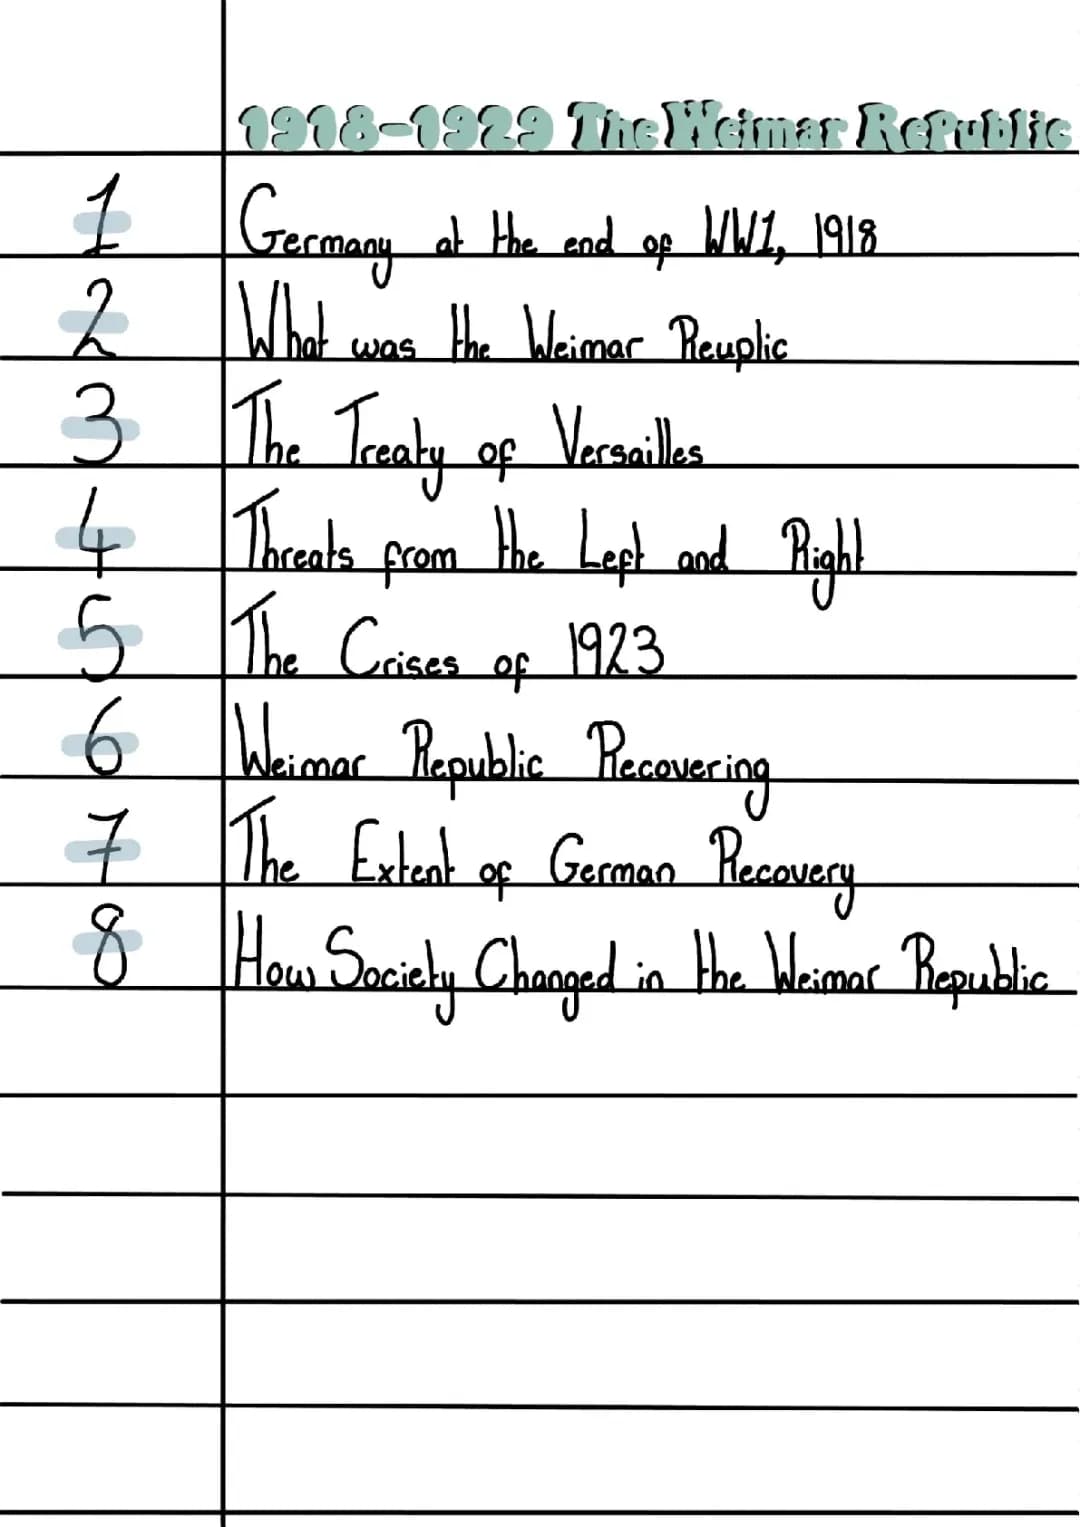 1918-1929 The Weimar RePublic
1 Germany at the end of WW1, 1918
2 What was the Weimar Reuplic
3 The Treaty of Versailles
4 Threats from the Left and Right
5 The Crises of 1923
6 Weimar Republic Recovering
7 The Extent of German Recovery
8 How Society Changed in the Weimar Republic